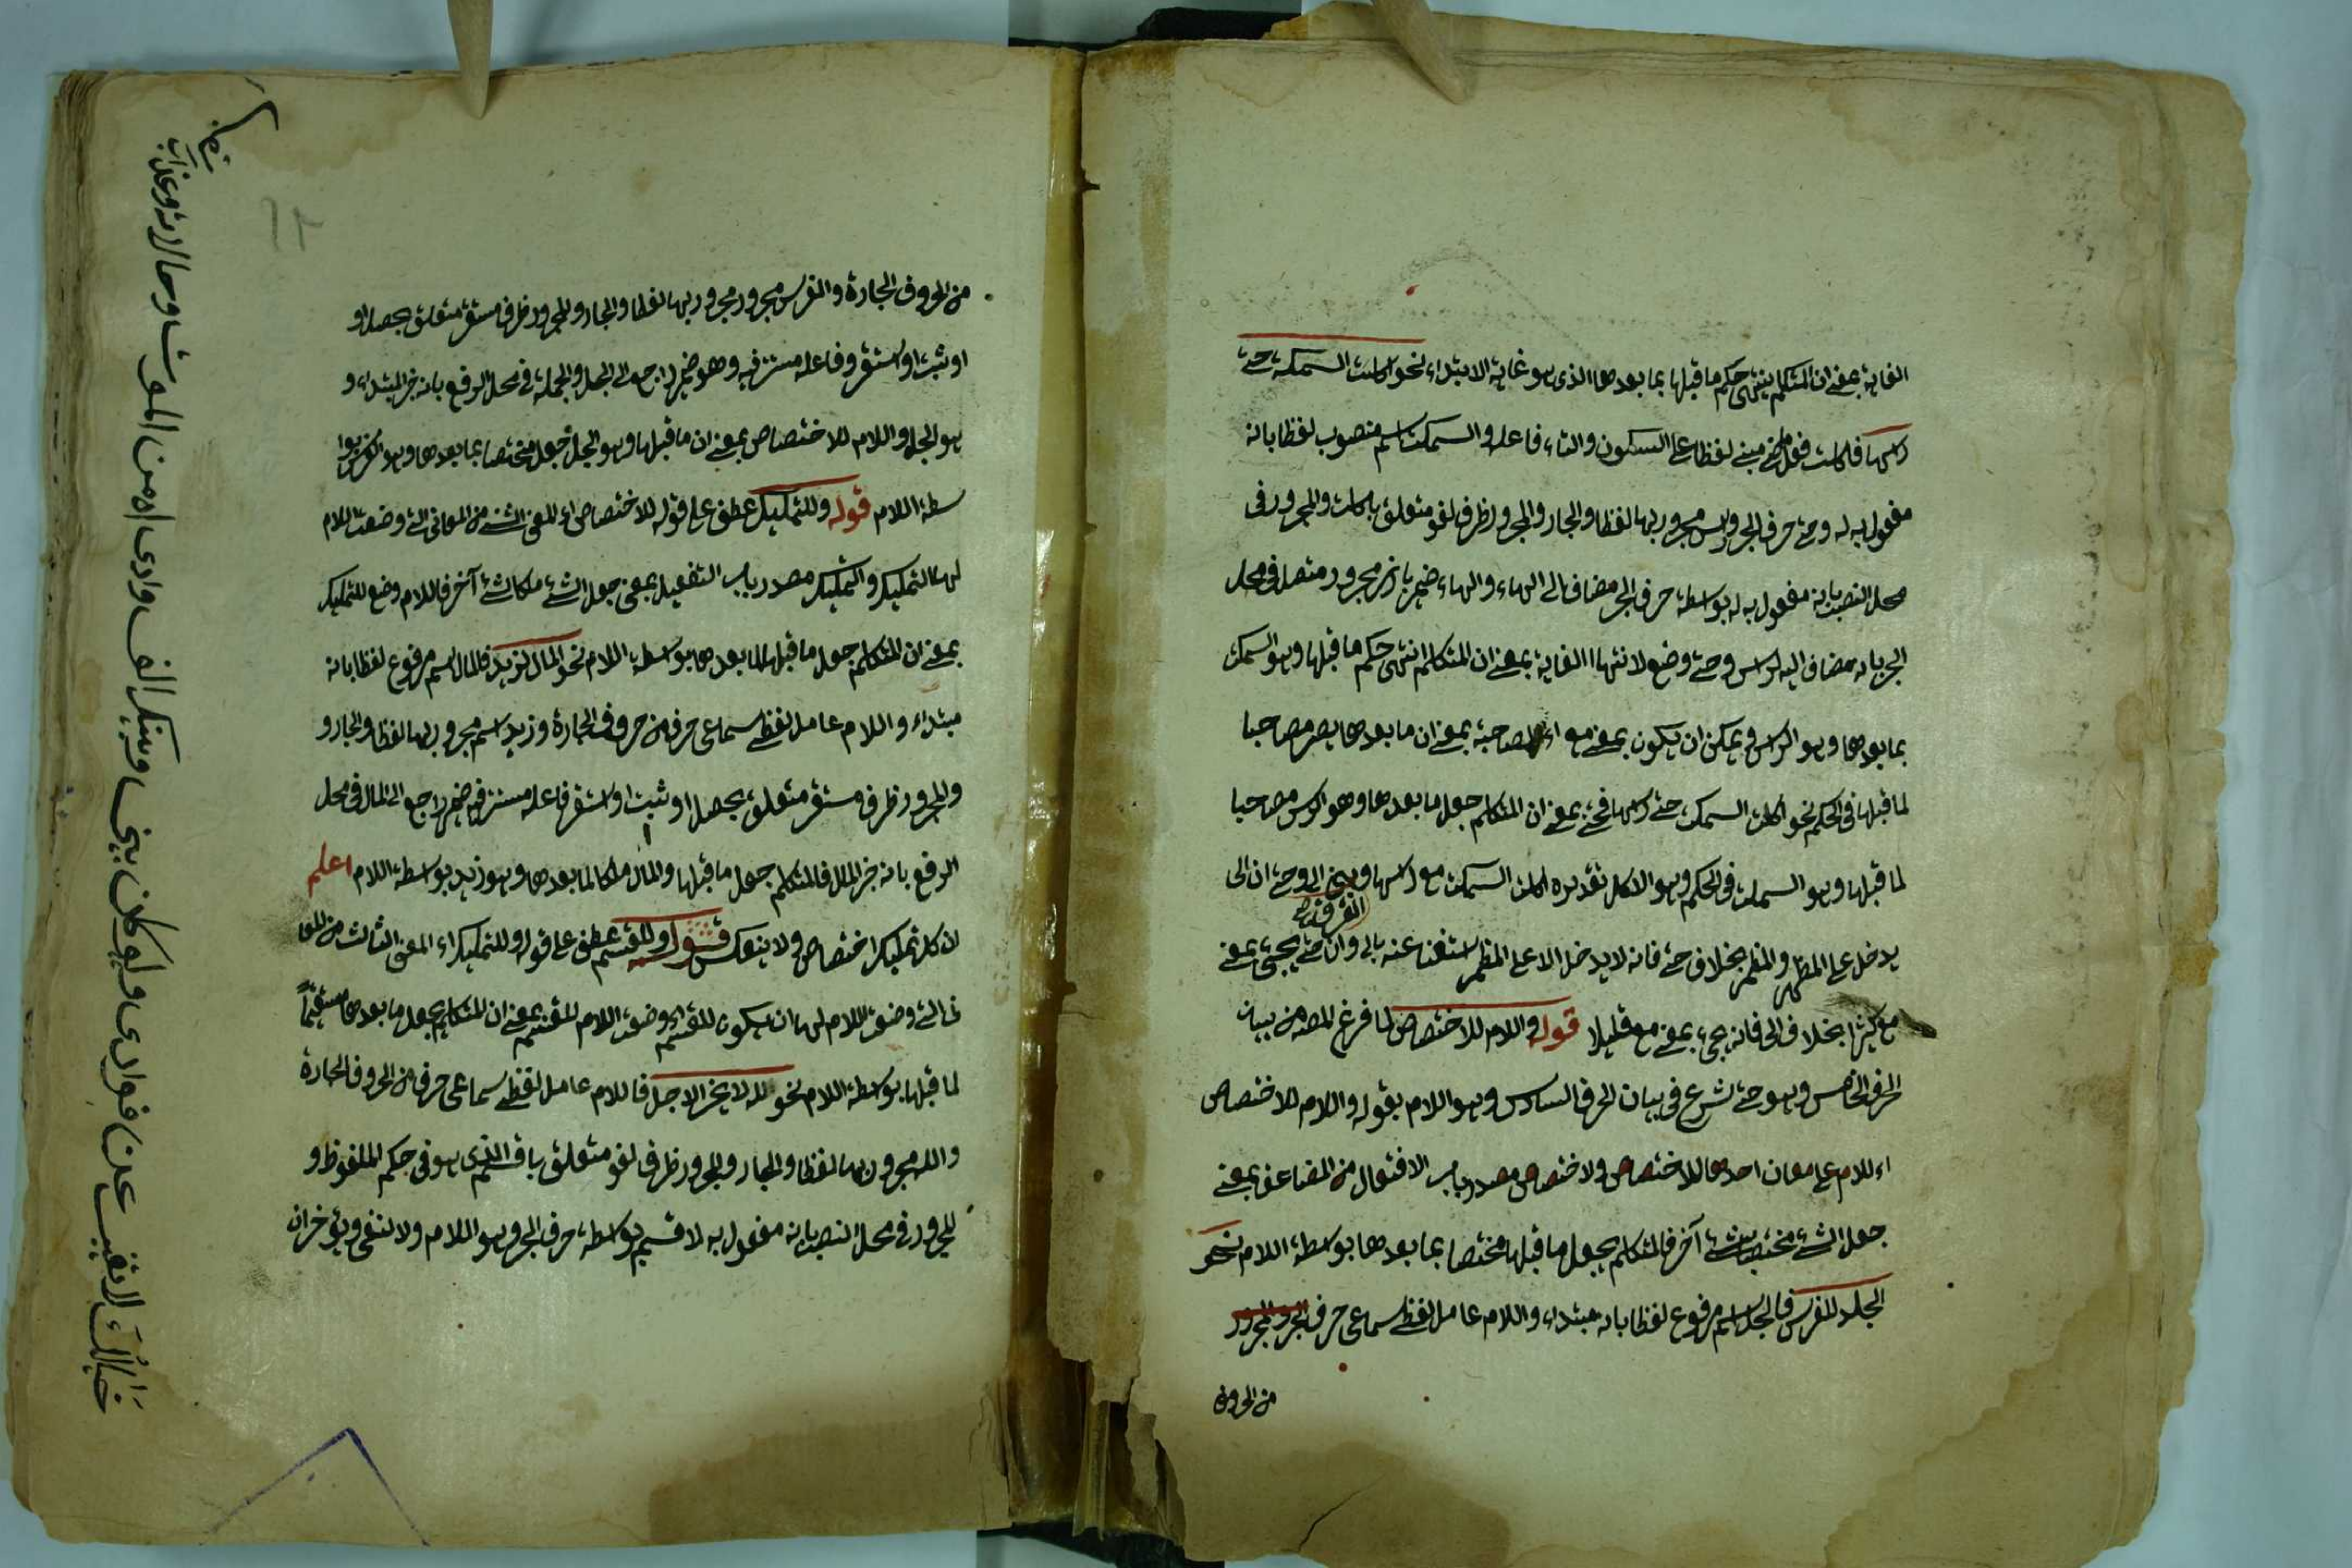 الغاية بمعنى ان المتكلم ينتهى حكم ما قبلها بما بعدها الذى هو غاية الابتداء نحو اكلت السمكة حتى
راسها فاكلت فعل ماض مبنى لفظا على السكون والتاء فاعل والسمكة اسم منصوب لفظا بانه
مفعول به له وحتى حرف الجر وراس مجرور بها لفظا والجار والمجرور ظرف لغو متعلق باكلت والمجرور فى
محل النصب بانه مفعول به له بواسطة حرف الجر مضاف الى الهاء والهاء ضمير بارز مجرور متصل فى محل
الجر بانه مضاف اليه لراس وحتى وضع لانتهاء الغاية بمعنى ان المتكلم انتهى حكم ما قبلها وهو السمكة
بما بعدها وهو الراس ويمكن ان يكون بمعنى مع اى المصاحبة بمعنى ان ما بعدها يصير مصاحبا
لما قبلها فى الحكم نحو اكلت السمكة حتى راسها فحتى بمعنى ان المتكلم جعل ما بعدها وهو الراس مصاحبا
لما قبلها وهو السمكة فى الحكم وهو الاكل تقديره اكلت السمكة مع راسها وبين الى وحتى ان الى
الفرق
يدخل على المظهر والمضمر بخلاف حتى فانه لا يدخل الا على المظهر استغناء عنه بالى وان حتى يجئ بمعنى
مع كثيرا بخلاف الى فانه يجئ بمعنى مع قليلا قوله واللام للاختصاص لما فرغ المصه من بيان
الحرف الخامس وهو حتى شرع فى بيان الحرف السادس وهو اللام بقوله واللام للاختصاص
اى اللام على معان احدها للاختصاص والاختصاص مصدر باب الافتعال من المضاعف بمعنى
جعل الشئ مختصا بشئ آخر فالمتكلم يجعل ما قبلها مختصا بما بعدها بواسطة اللام نحو
الجل للفرس فالجل اسم مرفوع لفظا بانه مبتداء واللام عامل لفظى سماعى حرف الجر والمجرور
من الحروف
من الحروف الجارة والفرس مجرور مجرور بها لفظا والجار والمجرور ظرف مستقر متعلق بحصل او
او ثبت او استقر وفاعله مستتر فيه وهو ضمير راجع الى الجل والجملة فى محل الرفع بانه خبر المبتداء و
هو الجل واللام للاختصاص بمعنى ان ما قبلها وهو الجل جعل مختصا بما بعدها وهو الفرس بوا
سطة اللام قوله وللتمليك عطف على قوله للاختصاص اى المعنى الثانى من المعانى التى وضعت اللام
لها التمليك والتمليك مصدر باب التفعيل بمعنى جعل الشئ ملكا لشئ آخر فاللام وضع للتمليك
بمعنى ان المتكلم جعل ما قبلها لما بعدها بواسطة اللام نحو المال لزيد فالمال اسم مرفوع لفظا بانه
مبتداء واللام عامل لفظى سماعى حرف من حروف الجارة وزيد اسم مجرور بها لفظا والجار و
والمجرور ظرف مستقر متعلق بحصل او ثبت او استقر فاعله مستتر فيه ضمير راجع الى المال فى محل
الرفع بانه خبر المال فالمتكلم جعل ما قبلها والمال ملكا لما بعدها وهو زيد بواسطة اللام اعلم
ان كل تمليك اختصاص ولا ينعكس قوله وللقسم عطف على قوله وللتمليك اى المعنى الثالث من المعا
نى التى وضعت اللام لها ان يكون للقسم اى وضعت اللام للقسم بمعنى ان المتكلم يجعل ما بعدها مستقيما
لما قبلها بواسطة اللام نحو لله لا يؤخر الاجل فاللام عامل لفظى سماعى حرف من الحروف الجارة
والله مجرور بها لفظا والجار والمجرور ظرف لغو متعلق باقسم الذى هو فى حكم الملفوظ و
المجرور فى محل النصب بانه مفعول به لاقسم بواسطة حرف الجر وهو اللام ولا لنفى ويؤخر ان